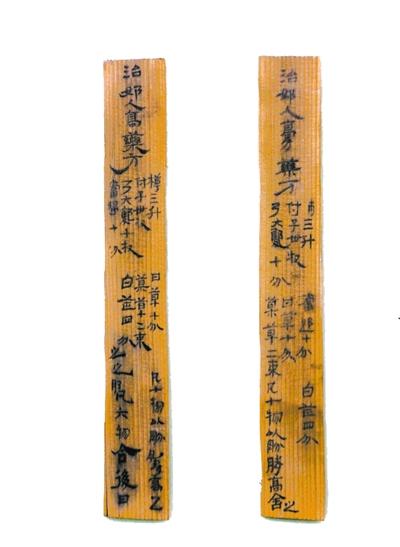 治婦人膏藥方
三升
付子卅枚
弓大鄭十分
當歸十分
白茝四分
曰草十分
菒草二束凡十物以肦膊高舍之
治婦人膏藥方
三升
付子卅枚
弓大鄭十枚
當歸十分
曰草十分
菒草十二束
凡十物以肦高之
白茝四分
六物合後曰